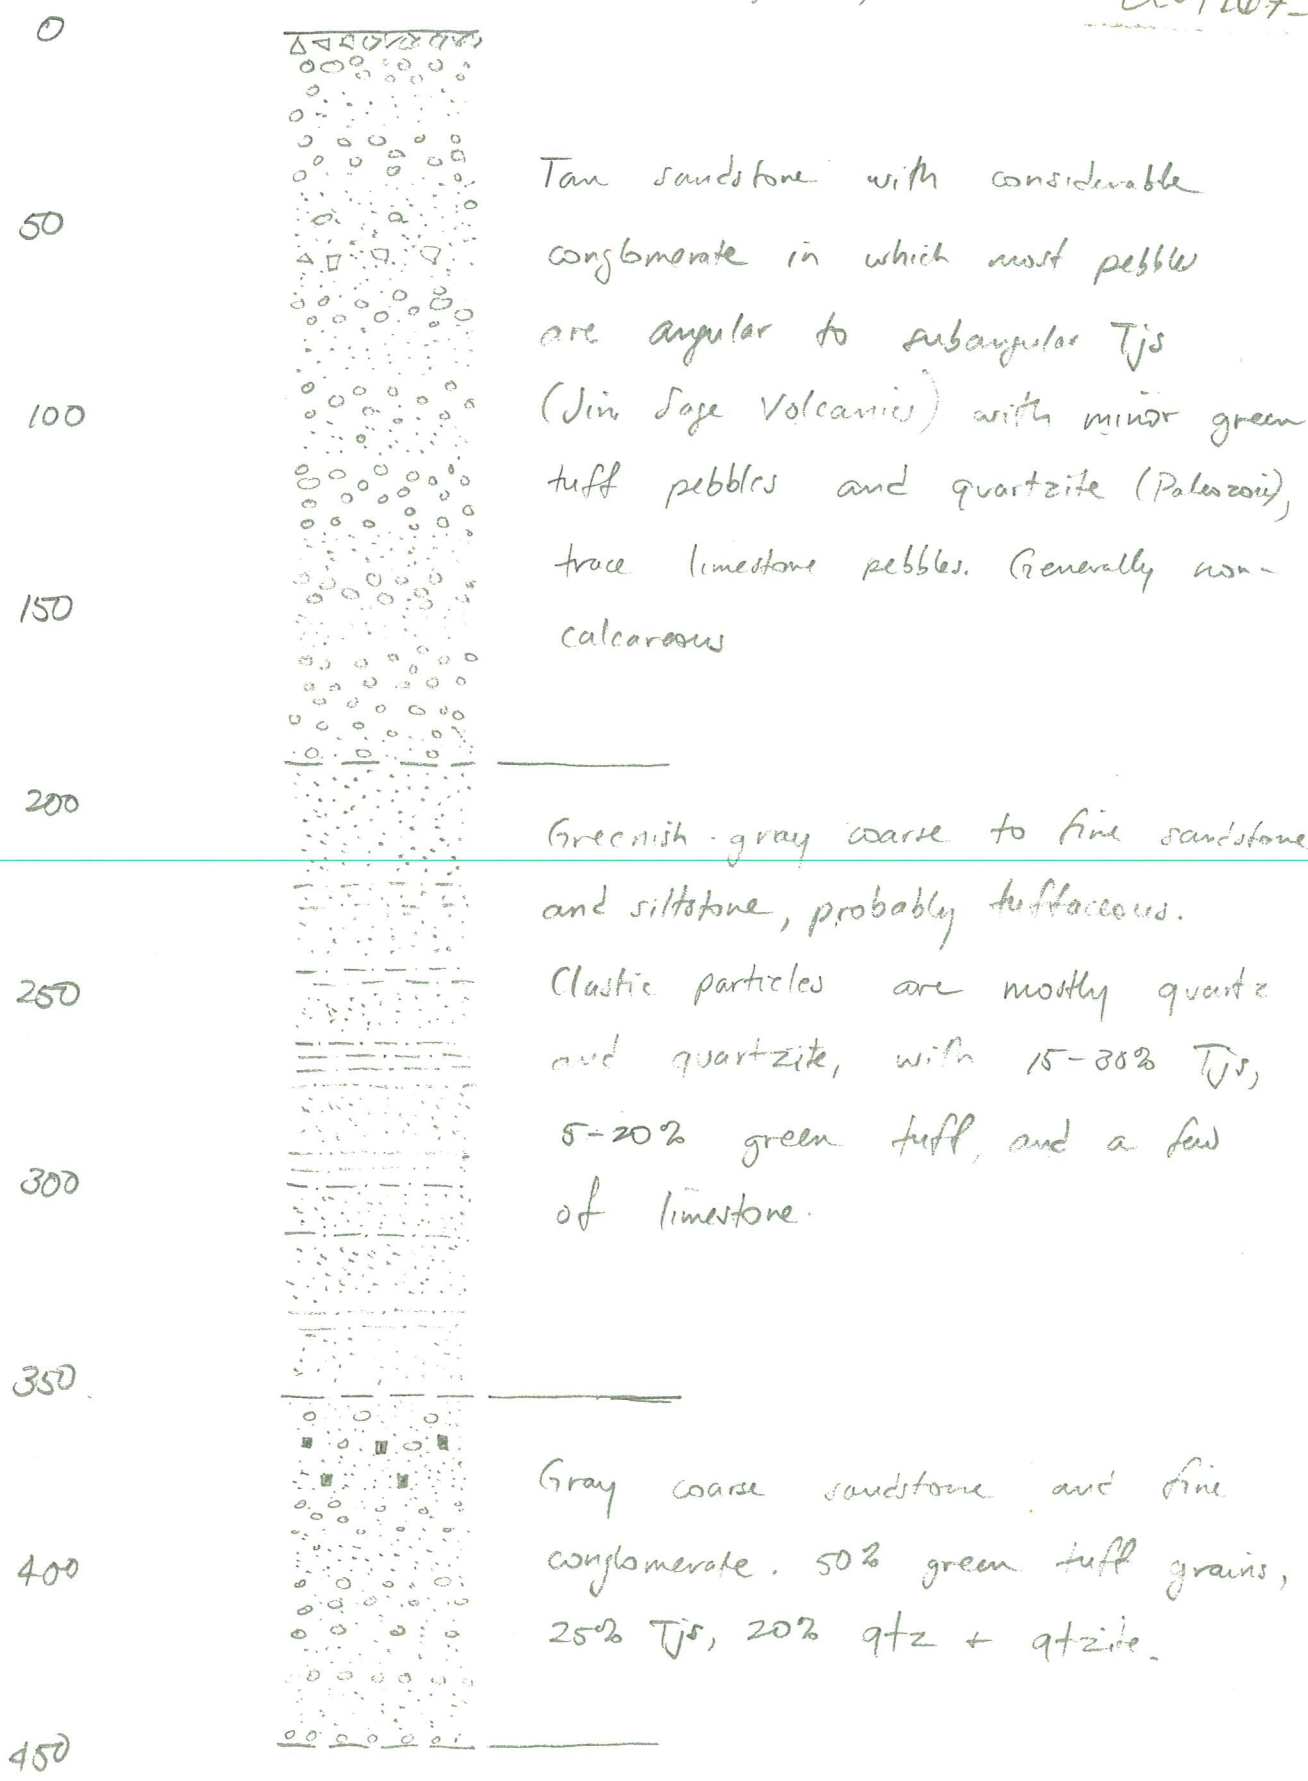 0
50
100
150
200
250
300
350
400
450
Tan sandstone with considerable
conglomerate in which most pebbles
are angular to subangular Tjs
(Jim Sage Volcanics) with minor green
tuff pebbles and quartzite (Paleozoic),
trace limestone pebbles. Generally non-
calcareous
Greenish-gray coarse to fine sandstone
and siltstone, probably tuffaceous.
Clastic particles are mostly quartz
and quartzite, with 15-30% Tjs,
5-20% green tuff, and a few
of limestone.
Gray coarse sandstone and fine
conglomerate. 50% green tuff grains,
25% Tjs, 20% qtz + qtzite.